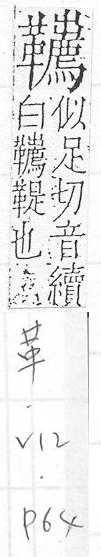 韉
似足切音續
白韉鞮也
革
·
V12
·
P64